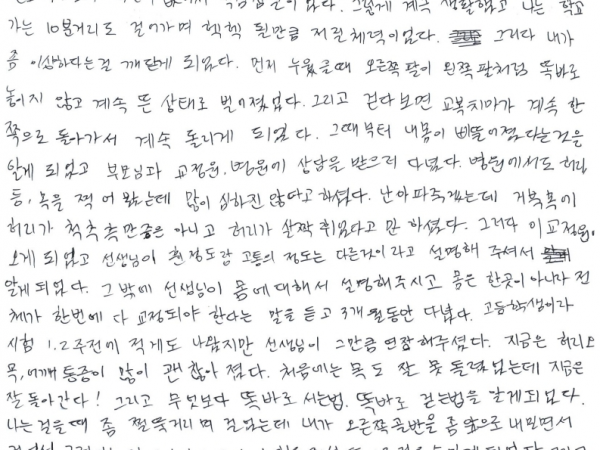 없었다. 그렇게 계속 생활했고 나는 학교
가는 10분거리도 걸어가며 헥헥 될만큼 저질체력이었다. 그러다 내가
좀 이상하다는걸 깨닫게 되었다. 먼저 누웠을때 오른쪽 팔이 왼쪽 팔처럼 똑바로
놓이지 않고 계속 뜬 상태로 벌어졌었다. 그리고 걷다보면 교복치마가 계속 한
쪽으로 돌아가서 계속 돌리게 되었다. 그때부터 내몸이 삐뚤어졌다는것을
알게 되었고 부모님과 교정원, 병원에 상담을 받으러 다녔다. 병원에서도 허리
등, 목을 찍어 봤는데 많이 심하진 않다고 하셨다. 난 아파죽겠는데 거북목에
허리가 척추측만증은 아니고 허리가 살짝 휘었다고만 하셨다. 그러다 이 교정원
오게 되었고 선생님이 휜정도랑 고통의 정도는 다른것이라고 설명해 주셔서
알게 되었다. 그 밖에 선생님이 몸에 대해서 설명해주시고 몸은 한곳이 아니라 전
체가 한번에 다 교정되야 한다는 말을 듣고 3개월동안 다녔다. 고등학생이라
시험 1.2주전에 적게도 나왔지만 선생님이 그만큼 연장해주셨다. 지금은 허리, 
목, 어깨 통증이 많이 괜찮아 졌다. 처음에는 목도 잘 못 돌렸었는데 지금은
잘 돌아간다! 그리고 무엇보다 똑바로 서는법, 똑바로 걷는법을 알게되었다.
나는 걸을때 좀 쩔뚝거리며 걸었는데 내가 오른쪽골반을 좀 앞으로 내밀면서